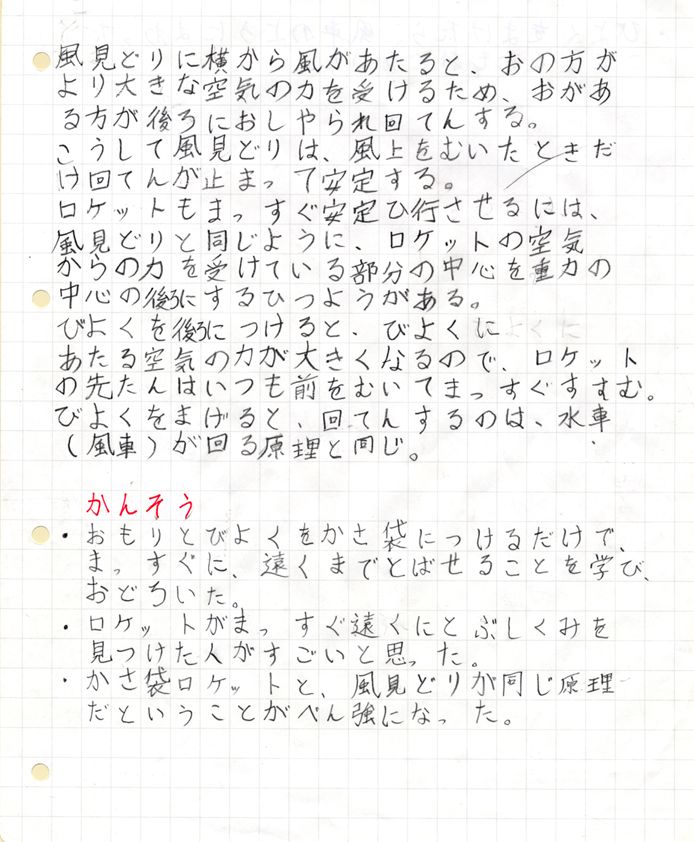 風見どりに横から風があたると、おの方が
より大きな空気の力を受けるため、おがあ
る方が後ろにおしやられ回てんする。
こうして風見どりは、風上をむいたときだ
け回てんが止まって安定する。
ロケットもまっすぐ安定ひ行させるには、
風見どりと同じように、ロケットの空気
からの力を受けている部分の中心を重力の
中心の後ろにするひつようがある。
びよくを後ろにつけると、びよくに
あたる空気の力が大きくなるので、ロケット
の先たんはいつも前をむいてまっすぐすすむ。
びよくをまげると、回てんするのは、水車
(風車)が回る原理と同じ。
かんそう
・おもりとびよくをかさ袋につけるだけで、
まっすぐに、遠くまでとばせることを学び、
おどろいた。
・ロケットがまっすぐ遠くにとぶしくみを
見つけた人がすごいと思った。
・かさ袋ロケットと、風見どりが同じ原理
だということがべん強になった。